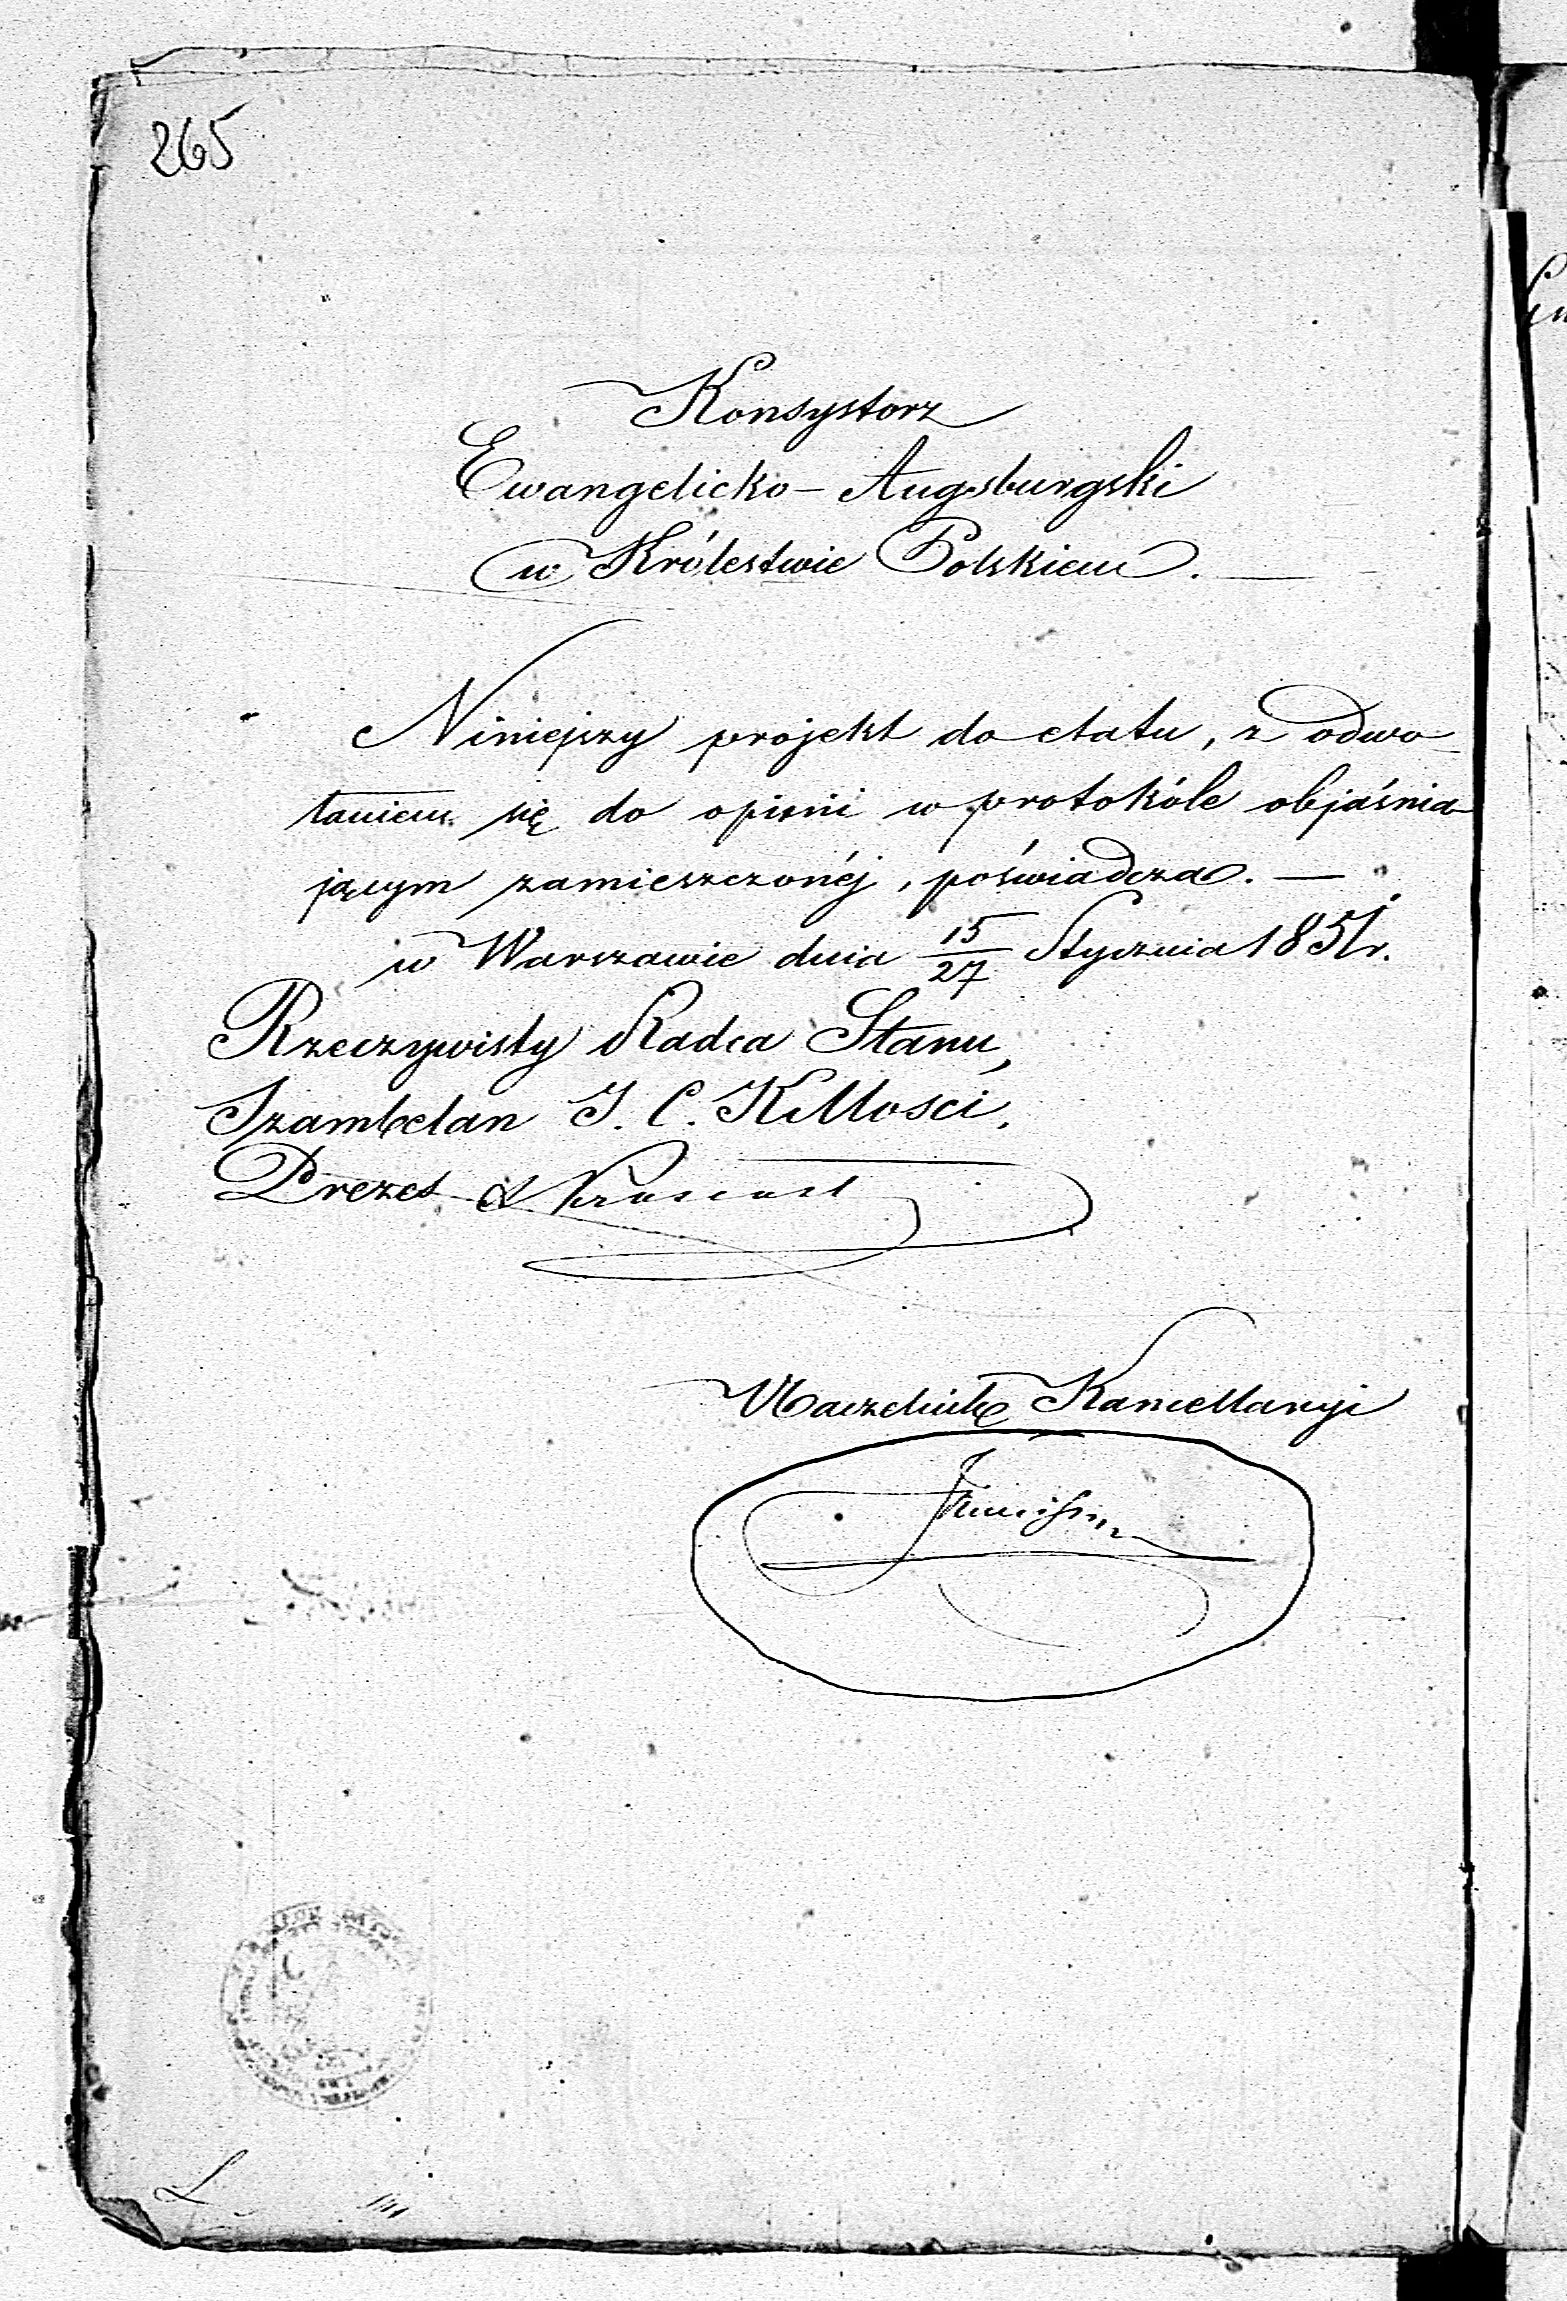 265
Konsystorz
Ewangelicko-Augsburgski
w Królestwie Polskiem.
Niniejszy projekt do etatu, z odwo-
łaniem się do opinii w protokóle objaśnia-
jącym zamieszczonéj, poświadcza. —
w Warszawie dnia 15/27 Stycznia 1851 r.
Rzeczywisty Radca Stanu,
Szambelan J. C. K. Mości,
Prezes
Naczelnik Kancellaryi